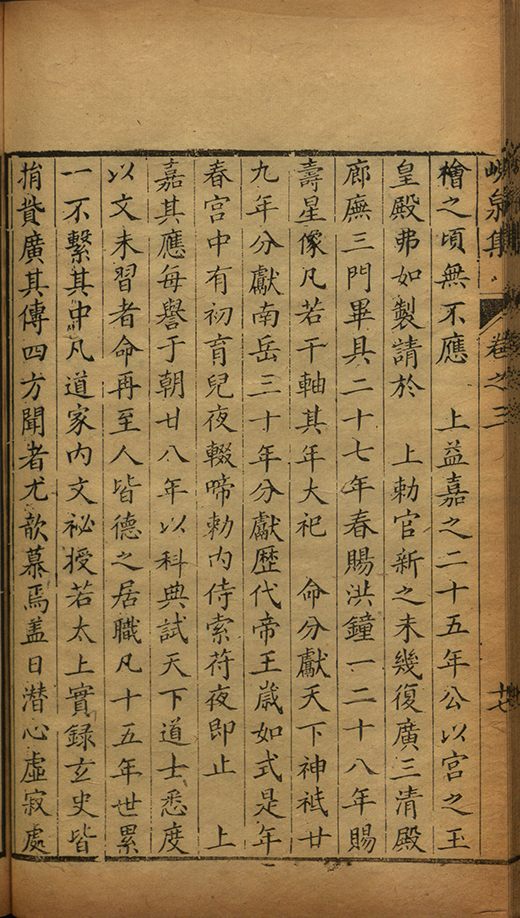 峴泉集
卷之三
十七
檜之頃無不應　上益嘉之二十五年公以宮之玉
皇殿弗如製請於　上勅官新之未幾復廣三清殿
廊廡三門畢具二十七年春賜洪鐘一二十八年賜
壽星像凡若干軸其年大祀　命分獻天下神祇廿
九年分獻南岳三十年分獻歷代帝王歲如式是年
春宮中有初育兒夜輟啼勅內侍索符夜即止　上
嘉其應每譽于朝廿八年以科典試天下道士悉度
以文未習者命再至人皆德之居職凡十五年世累
一不繫其中凡道家內文祕授若太上實錄玄史皆
捐貲廣其傳四方聞者尤歆慕焉盖日潛心虛寂處